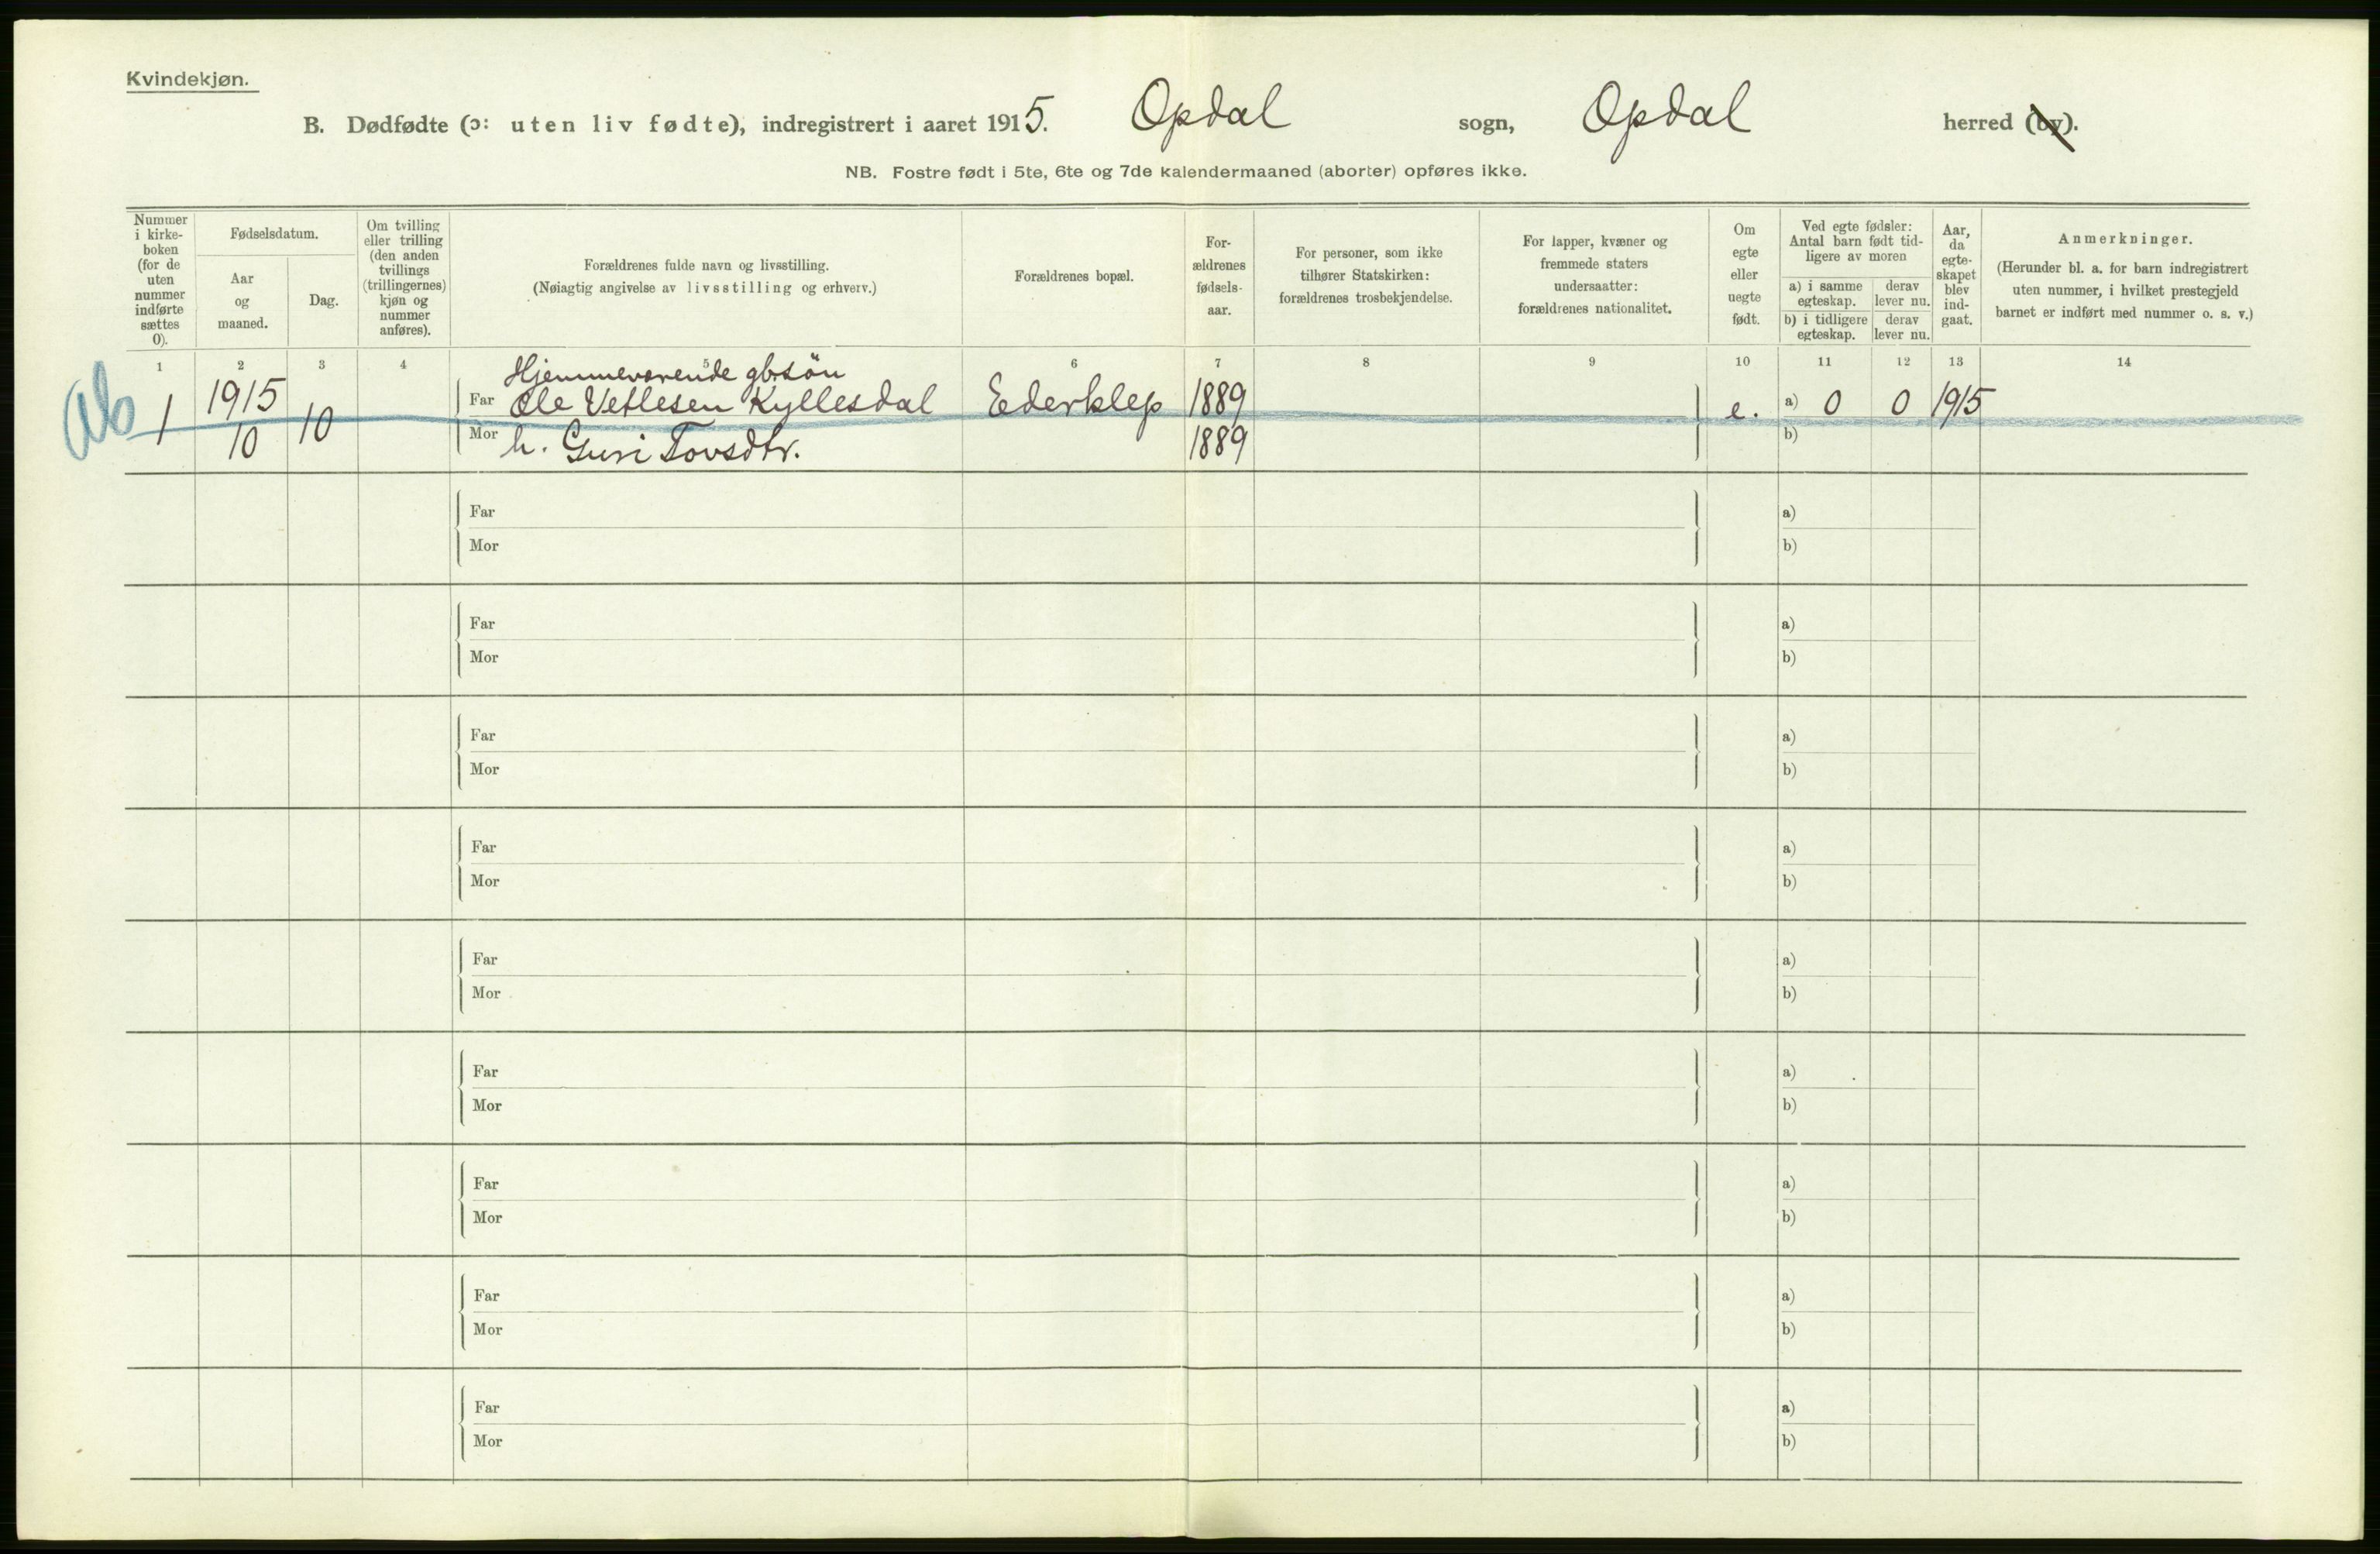 Kvindekjøn.
B. Dødfødte (ɔ: uten liv fødte), indregistrert i aaret 1915. Opdal sogn, Opdal herred (by).
NB. Fostre født i 5te, 6te og 7de kalendermaaned (aborter) opføres ikke.
Nummer
i kirke-
boken
(for de
uten
nummer
indførte
sættes
0).
Fødselsdatum.
Aar
og
maaned.
Dag.
Om tvilling
eller trilling
(den anden
tvillings
(trillingernes)
kjøn og
nummer
anføres).
Forældrenes fulde navn og livsstilling.
(Nøiagtig angivelse av livsstilling og erhverv.)
Forældrenes bopæl.
For-
ældrenes
fødsels-
aar.
For personer, som ikke
tilhører Statskirken:
forældrenes trosbekjendelse.
For lapper, kvæner og
fremmede staters
undersaatter:
forældrenes nationalitet.
Om
egte
eller
uegte
født.
Ved egte fødsler:
Antal barn født tid-
ligere av moren
a) i samme
egteskap.
derav
lever nu.
b) i tidligere
egteskap.
derav
lever nu.
Aar,
da
egte-
skapet
blev
ind-
gaat.
Anmerkninger.
(Herunder bl. a. for barn indregistrert
uten nummer, i hvilket prestegjeld
barnet er indført med nummer o. s. v.)
1 2 3 4 5 6 7 8 9 10 11 12 13 14
Ab
Hjemmeværende gbr.søn
1 1915 10 Far Ole Vetlesen Kyllesdal Ederklep 1889 e. a) 0 0 1915
10 Mor h. Guri Tovsdtr. 1889 b)
Far a)
Mor b)
Far a)
Mor b)
Far a)
Mor b)
Far a)
Mor b)
Far a)
Mor b)
Far a)
Mor b)
Far a)
Mor b)
Far a)
Mor b)
Far a)
Mor b)